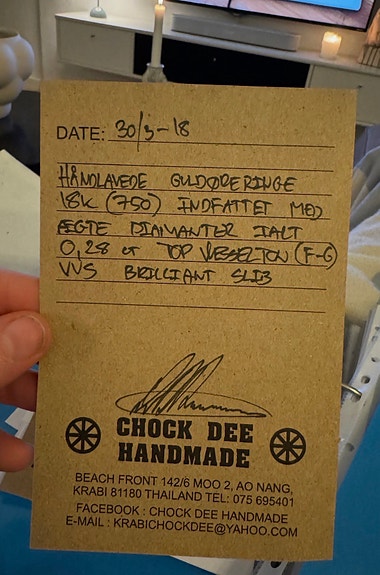 DATE: 30/3-18
HÅNDLAVEDE GULDØRERINGE
18K (750) INDFATTET MED
ÆGTE DIAMANTER IALT
0,28 ct TOP WESSELTON (F-G)
VVS BRILLIANT SLIB
CHOCK DEE
HANDMADE
BEACH FRONT 142/6 MOO 2, AO NANG,
KRABI 81180 THAILAND TEL: 075 695401
FACEBOOK : CHOCK DEE HANDMADE
E-MAIL : KRABICHOCKDEE@YAHOO.COM